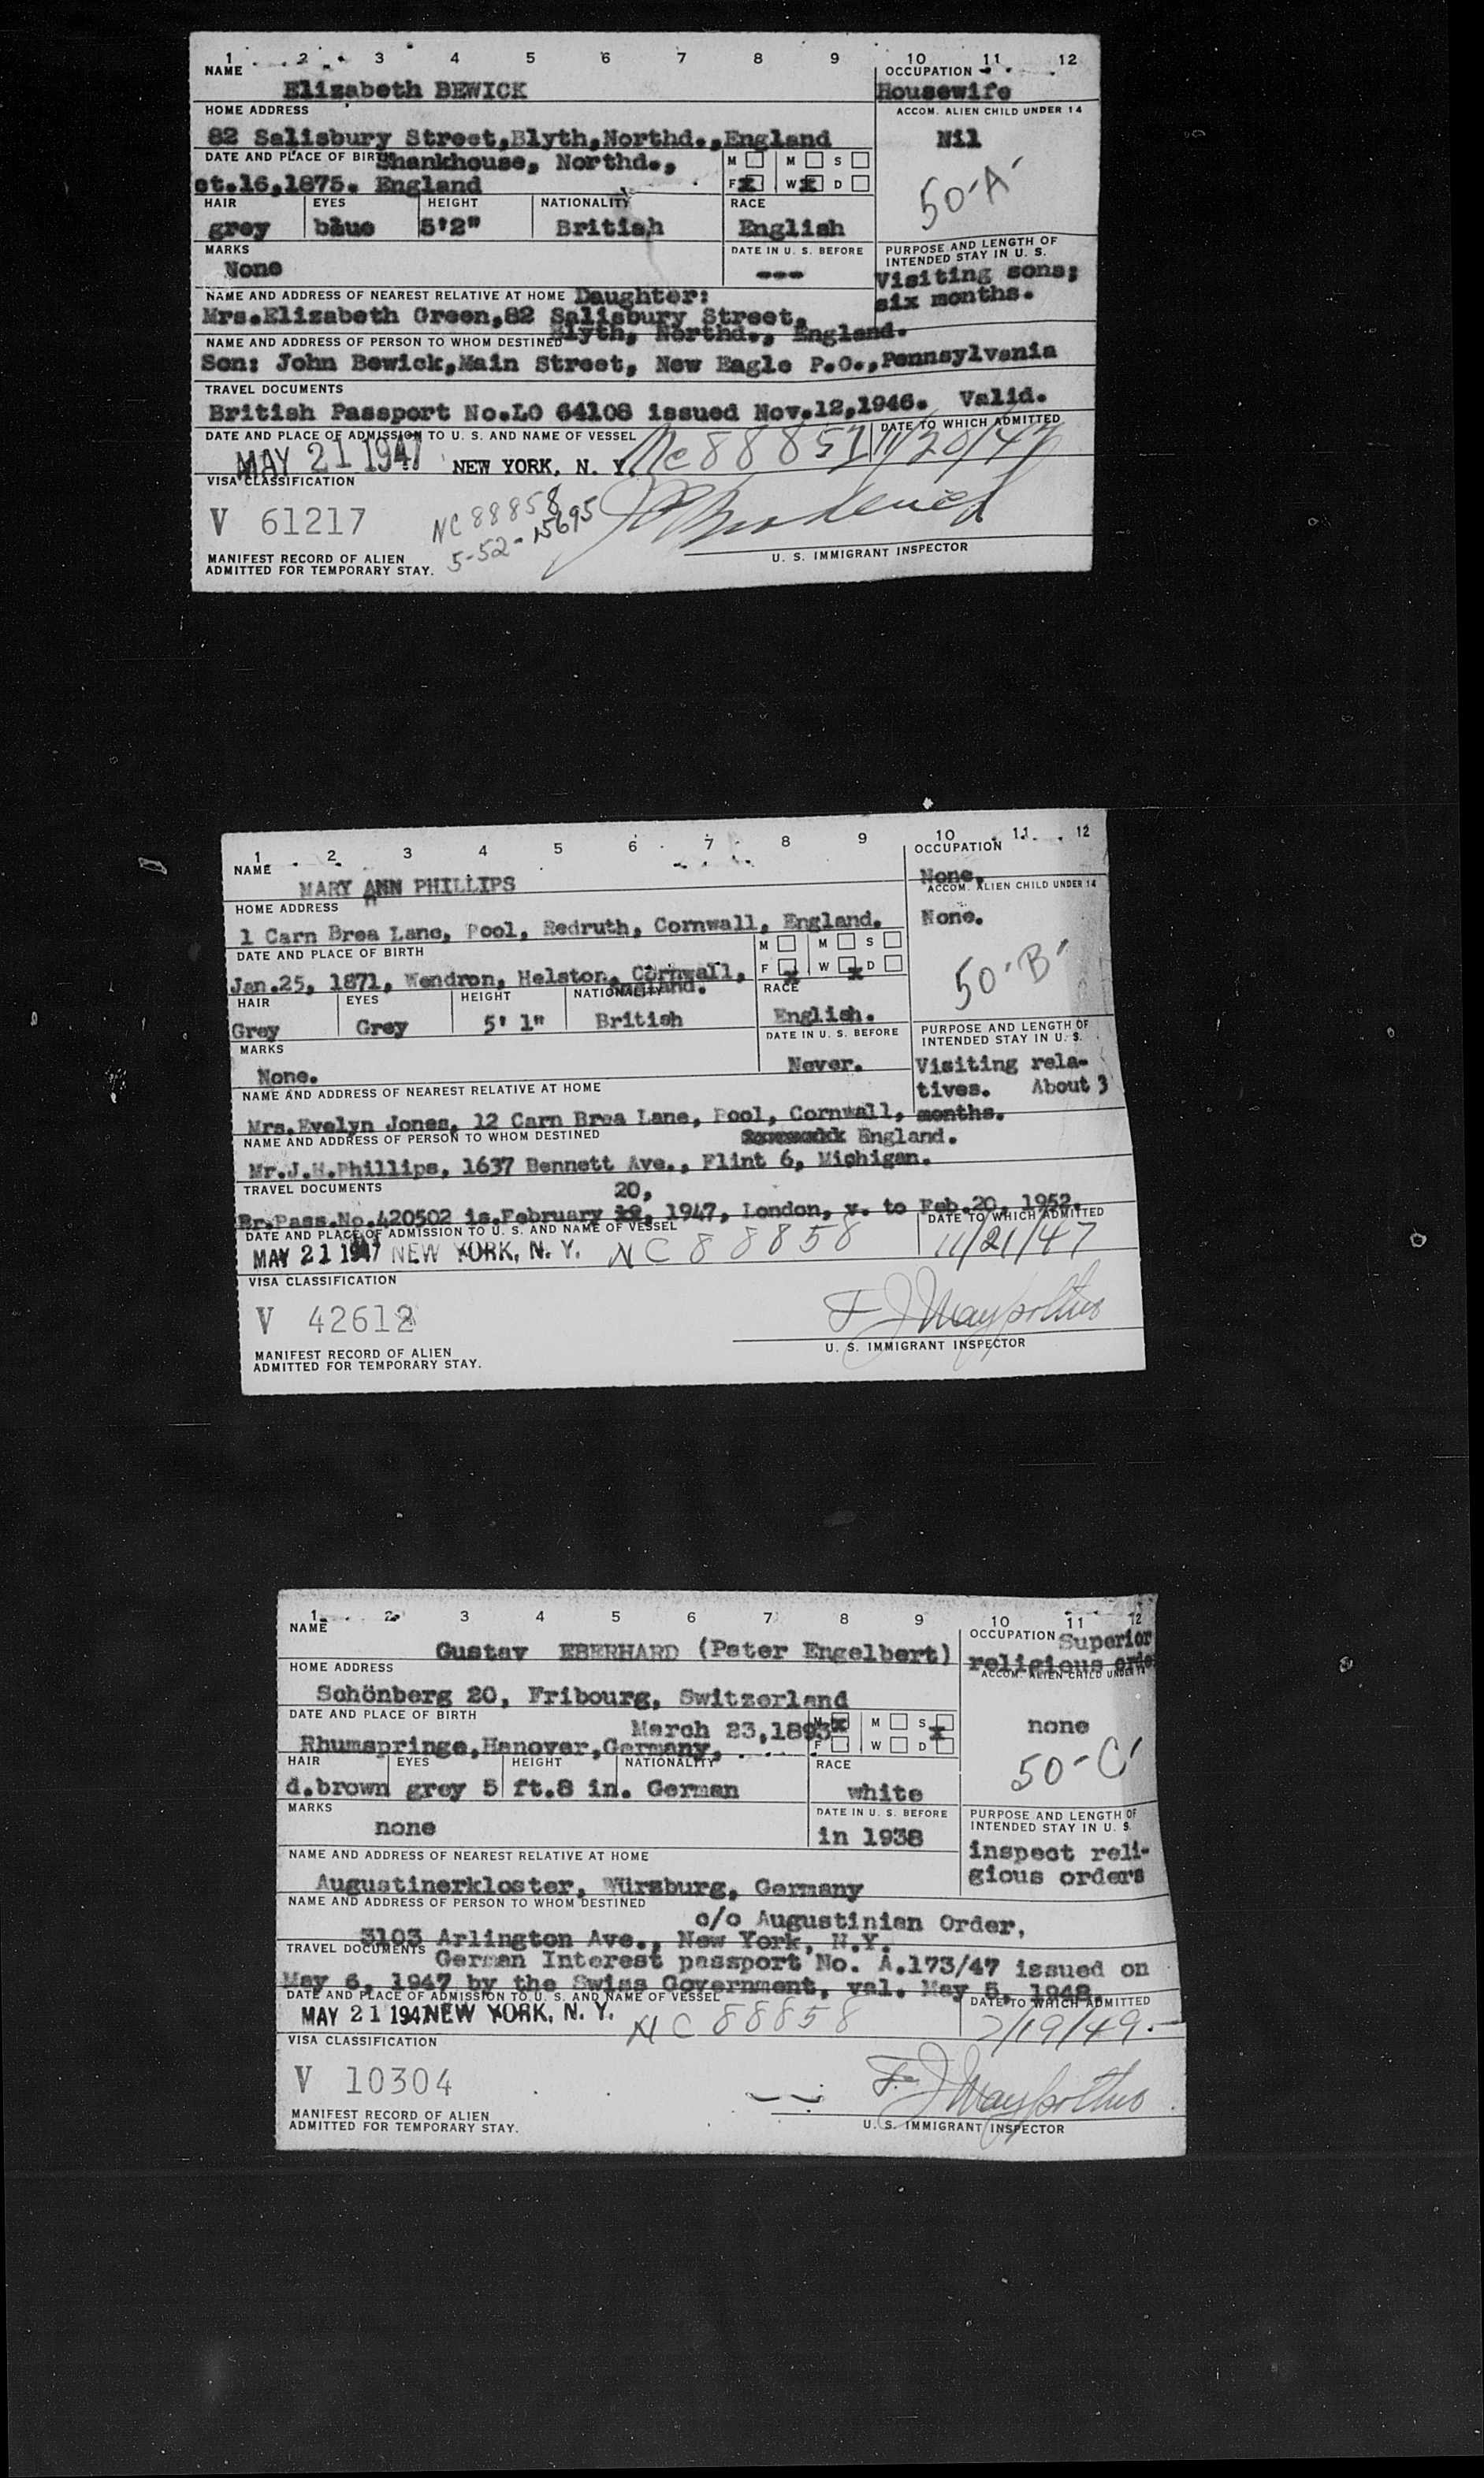 1 2 3 4 5 6 7 8 9 10 11 12
NAME OCCUPATION
Elizabeth BEWICK Housewife
HOME ADDRESS ACCOM. ALIEN CHILD UNDER 14
82 Salisbury Street,Blyth,Northd.,England Nil
DATE AND PLACE OF BIRTH Shankhouse, Northd., M M S
ct.16,1875. England F X W X D
50-A-
HAIR EYES HEIGHT NATIONALITY RACE
grey blue 5'2" British English
MARKS DATE IN U. S. BEFORE PURPOSE AND LENGTH OF
INTENDED STAY IN U. S.
None --- Visiting sons;
six months.
NAME AND ADDRESS OF NEAREST RELATIVE AT HOME Daughter:
Mrs.Elizabeth Green,82 Salisbury Street,
Blyth, Northd., England.
NAME AND ADDRESS OF PERSON TO WHOM DESTINED
Son: John Bewick,Main Street, New Eagle P.O.,Pennsylvania
TRAVEL DOCUMENTS
British Passport No.LO 64108 issued Nov.12,1946. Valid.
DATE AND PLACE OF ADMISSION TO U. S. AND NAME OF VESSEL DATE TO WHICH ADMITTED
MAY 21 1947 NEW YORK, N. Y. 11/20/47
VISA CLASSIFICATION
V 61217 NC 88858
5-52-15695
MANIFEST RECORD OF ALIEN U. S. IMMIGRANT INSPECTOR
ADMITTED FOR TEMPORARY STAY.
1 2 3 4 5 6 7 8 9 10 11 12
NAME OCCUPATION
MARY ANN PHILLIPS None.
HOME ADDRESS ACCOM. ALIEN CHILD UNDER 14
1 Carn Brea Lane, Pool, Redruth, Cornwall, England. None.
DATE AND PLACE OF BIRTH M M S
Jan.25, 1871, Wendron, Helston, Cornwall, F X W X D
England.
50-B-
HAIR EYES HEIGHT NATIONALITY RACE
Grey Grey 5' 1" British English.
MARKS DATE IN U. S. BEFORE PURPOSE AND LENGTH OF
INTENDED STAY IN U. S.
None. Never. Visiting rela-
tives. About 3
NAME AND ADDRESS OF NEAREST RELATIVE AT HOME
Mrs.Evelyn Jones, 12 Carn Brea Lane, Pool, Cornwall, months.
NAME AND ADDRESS OF PERSON TO WHOM DESTINED England.
Mr.J.H.Phillips, 1637 Bennett Ave., Flint 6, Michigan.
TRAVEL DOCUMENTS 20,
Br.Pass.No.420502 is.February 1947, London, v. to Feb.20, 1952.
DATE AND PLACE OF ADMISSION TO U. S. AND NAME OF VESSEL DATE TO WHICH ADMITTED
MAY 21 1947 NEW YORK, N. Y. NC 88858 11/21/47
VISA CLASSIFICATION
V 42612
MANIFEST RECORD OF ALIEN U. S. IMMIGRANT INSPECTOR
ADMITTED FOR TEMPORARY STAY.
1 2 3 4 5 6 7 8 9 10 11 12
NAME OCCUPATION Superior
Gustav EBERHARD (Pater Engelbert) religious orde
HOME ADDRESS ACCOM. ALIEN CHILD UNDER 14
Schönberg 20, Fribourg, Switzerland
DATE AND PLACE OF BIRTH none
March 23,1893 M X M S X
Rhumspringe,Hanover,Germany, F W D
50-C-
HAIR EYES HEIGHT NATIONALITY RACE
d.brown grey 5 ft.8 in. German white
MARKS DATE IN U. S. BEFORE PURPOSE AND LENGTH OF
INTENDED STAY IN U. S.
none in 1938 inspect reli-
gious orders
NAME AND ADDRESS OF NEAREST RELATIVE AT HOME
Augustinerkloster, Würzburg, Germany
NAME AND ADDRESS OF PERSON TO WHOM DESTINED
c/o Augustinian Order,
3103 Arlington Ave., New York, N.Y.
TRAVEL DOCUMENTS German Interest passport No. A.173/47 issued on
May 6, 1947 by the Swiss Government, val. May 5, 1948.
DATE AND PLACE OF ADMISSION TO U. S. AND NAME OF VESSEL DATE TO WHICH ADMITTED
MAY 21 1947 NEW YORK, N. Y. NC 88858
VISA CLASSIFICATION
V 10304
MANIFEST RECORD OF ALIEN U. S. IMMIGRANT INSPECTOR
ADMITTED FOR TEMPORARY STAY.